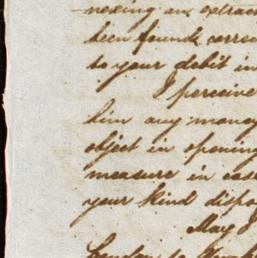 nexing an extrac
been found correc
to your debit in
I perceive
him any money
object in opening
measure in case
your kind dispo
May I
London to